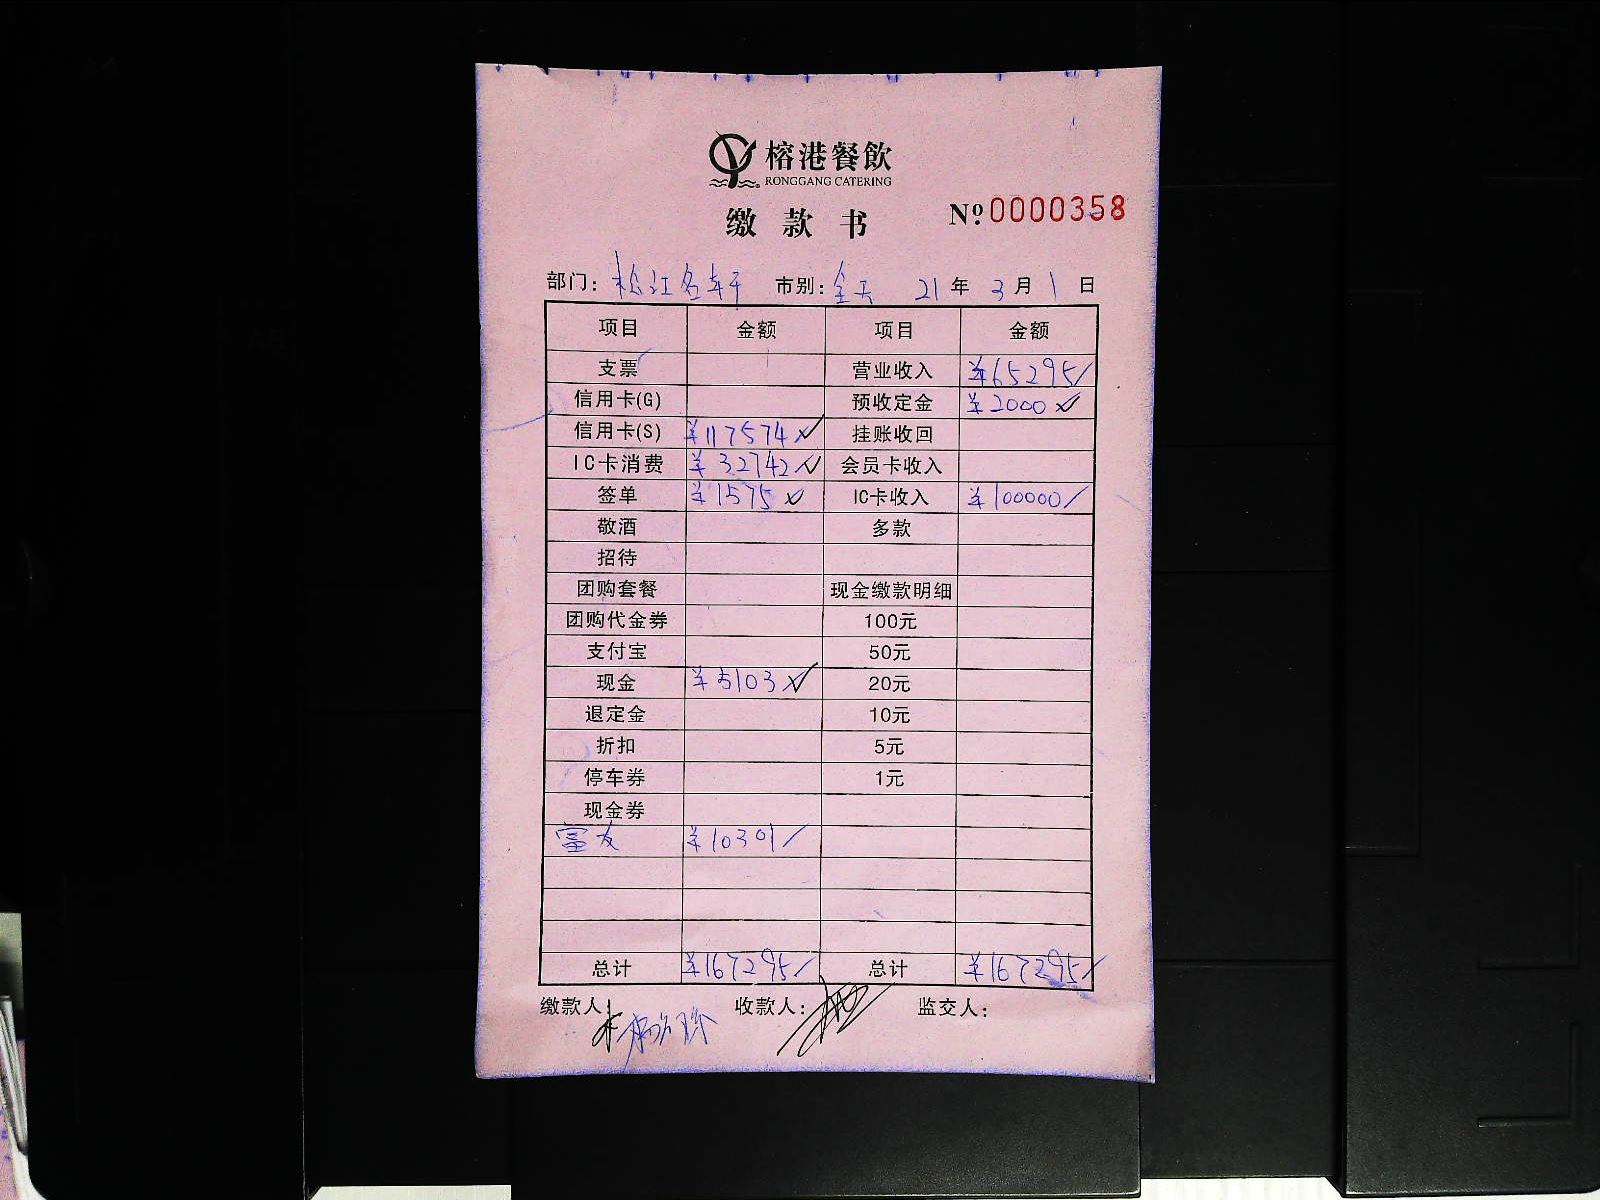 榕港餐飲
RONGGANG CATERING
缴款书 №0000358
部门：松江名轩 市别：全天 21年3月1日
项目 金额 项目 金额
支票 营业收入 ¥65295
信用卡(G) 预收定金 ¥2000
信用卡(S) ¥117574 挂账收回
IC卡消费 ¥32742 会员卡收入
签单 ¥1575 IC卡收入 ¥100000
敬酒 多款
招待
团购套餐 现金缴款明细
团购代金券 100元
支付宝 50元
现金 ¥5103 20元
退定金 10元
折扣 5元
停车券 1元
现金券
富友 ¥10301
总计 ¥167295 总计 ¥167295
缴款人： 收款人： 监交人：